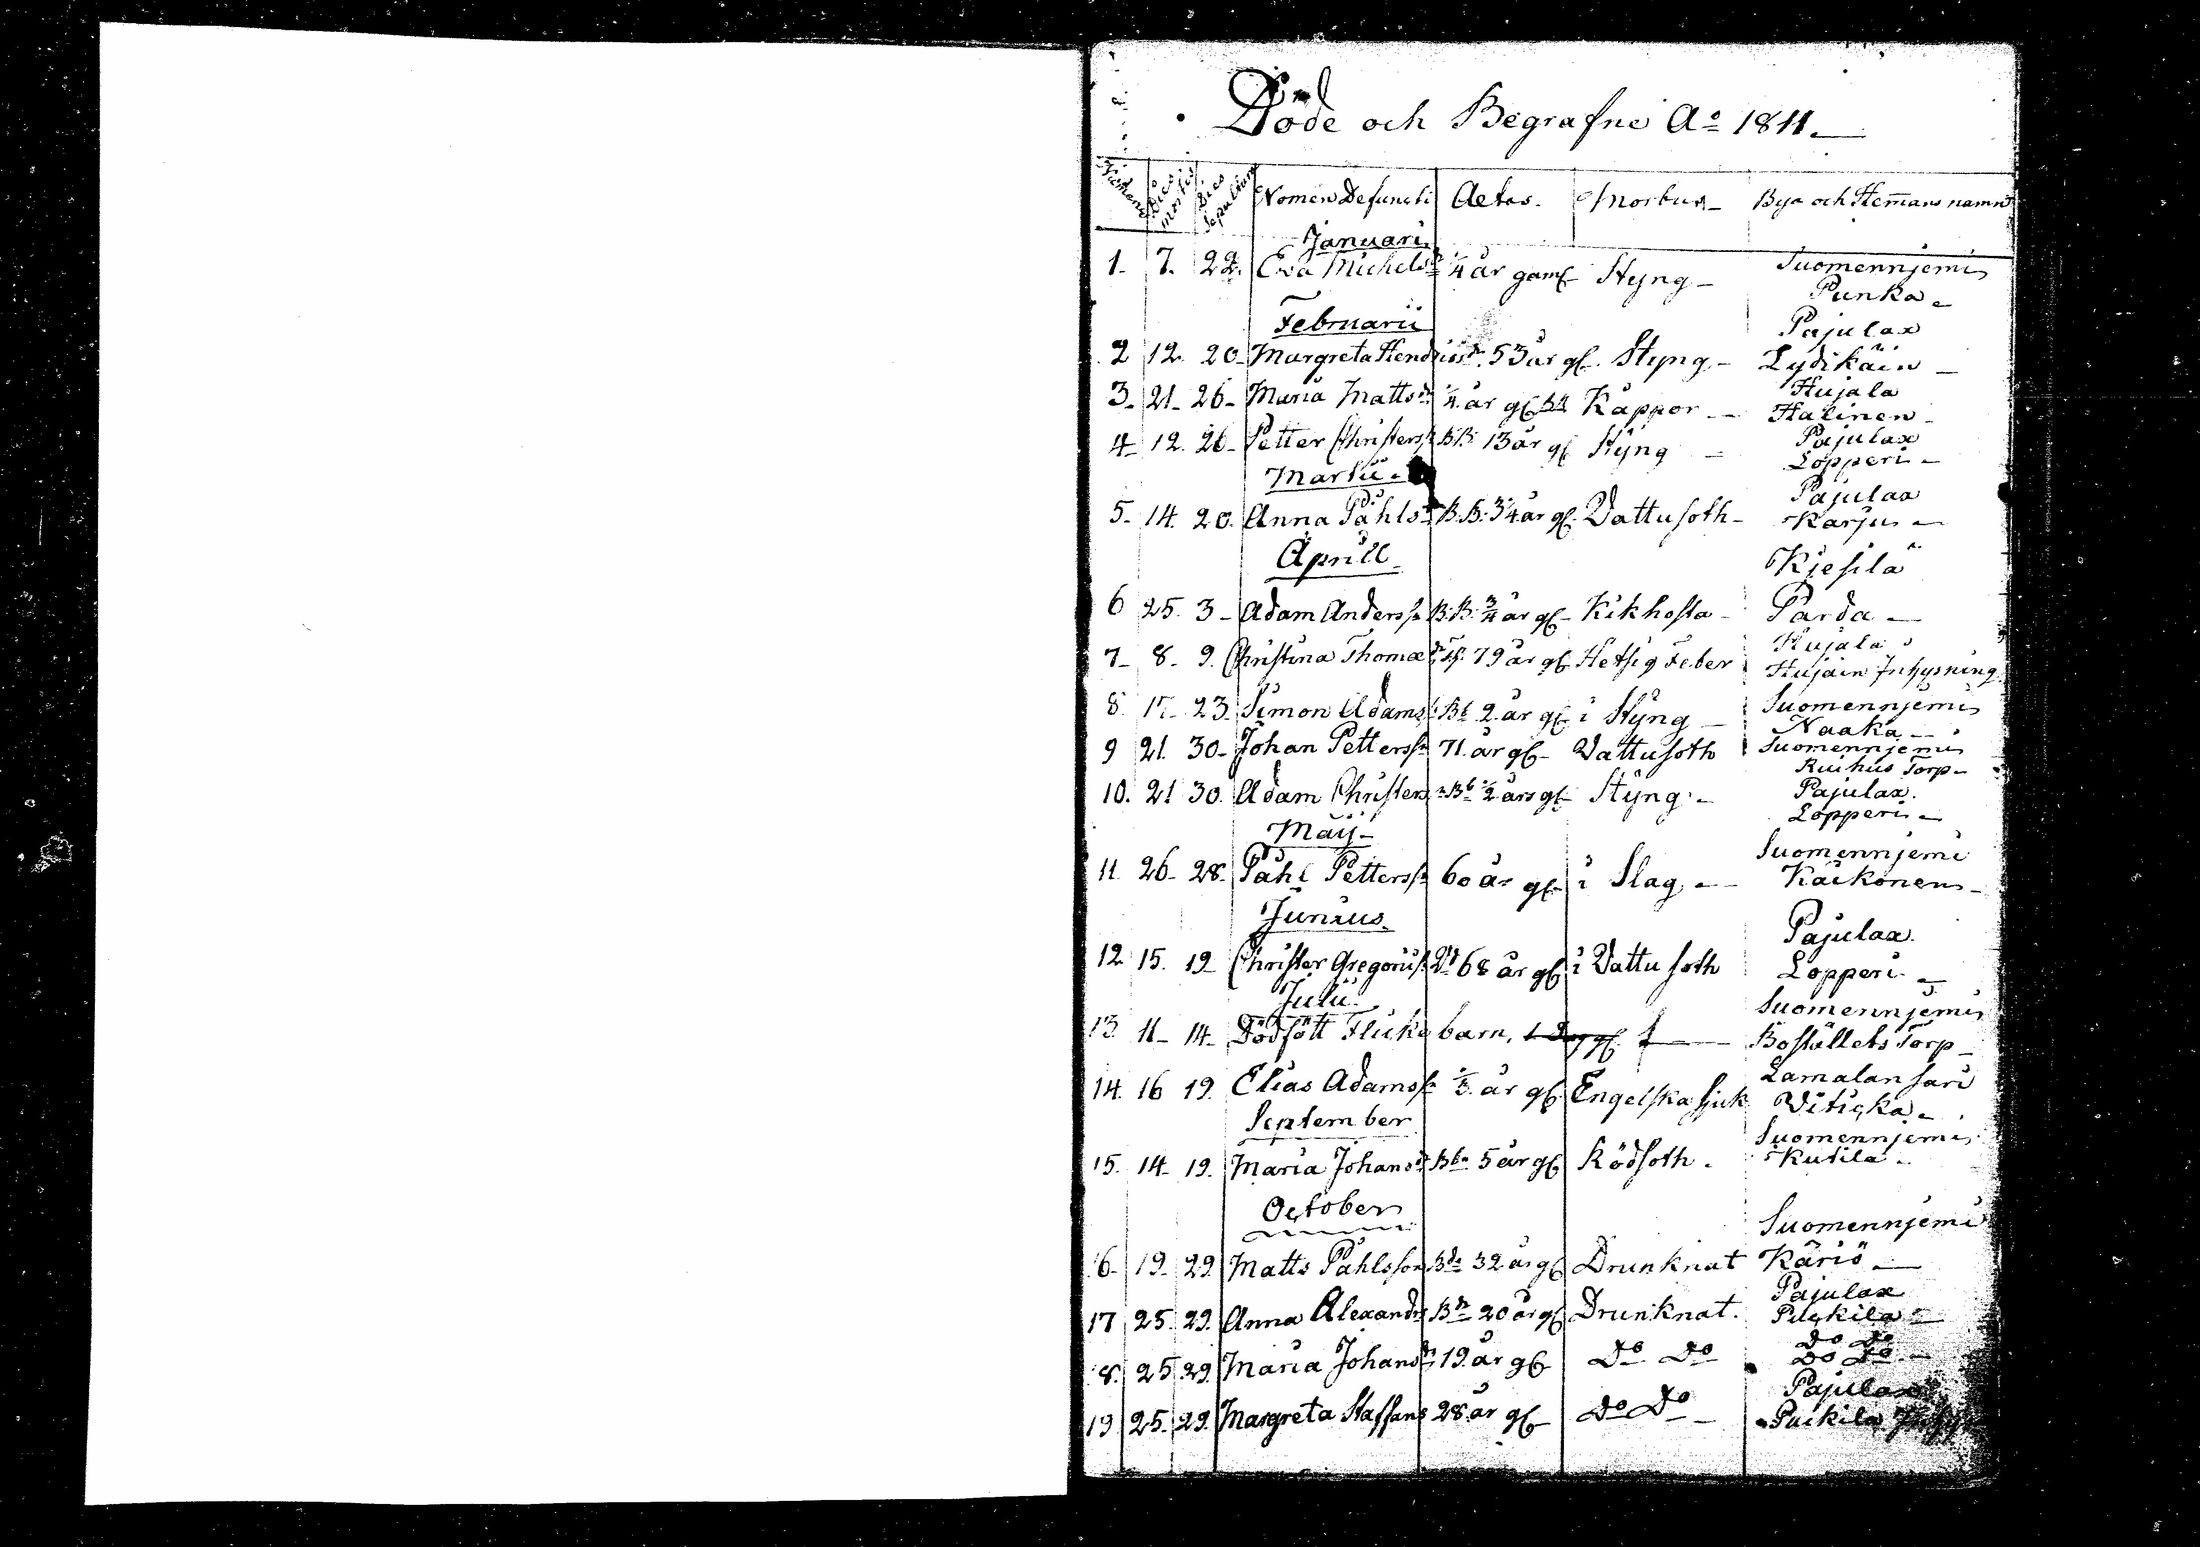 Döde och Begrafne Ao 1811.
Dies mortis Dies Sepulturæ Nomen Defuncti Aetas. Morbus Bya och Hemmans namn
Januari
1. 7. 22. Eva Michelsdr 1/4 år gaml Styng Suomennjemi
Punka
Februarii
Pajulax
2 12. 20. Margreta Hendricsdr. 53 år gl. Styng Lydikäin
Hujala
3. 21. 26. Maria Mattsdr 1/4 år gl Kåppor Halinen
Pajulax
4 12. 26. Petter Christerss: B:B: 13 år gl Styng Lopperi
Martii
Pajulax
5. 14. 20. Anna Påhlsdr B:B: 3/4 år gl. Vattusoth Karju
Aprill
Kjesilä
6 25. 3 Adam Anderss: B:B: 3/4 år gl Kikhosta Parda
Hujala
7 8. 9. Christina Thomædr 79 år gl Hetsig Feber Hujain Inhysning
8. 17 23. Simon Adamss: 2 år gl i Styng Suomennjemi
Naaka
9 21. 30 Johan Petterss: 71. år gl Vattusoth Suomennjemi
Ruihus Torp
10. 21 30. Adam Christers: 1/2 års gl Styng Pajulax.
Lopperi
Maij
Suomennjemi
11 26 28. Påhl Petterss: 60 år gl i Slag Käikonen
Junius
Pajulax.
12 15. 19 Christer Gregoriis: 68 år gl i Vattusoth Lopperi
Julii
Suomennjemi
13 11 14. Dödfött Flicke barn, Boställets Torp
Lamalansari
14. 16 19. Elias Adamss: 1/3 år gl Engelska Sjuk Viticka
September
Suomennjemi
15. 14. 19. Maria Johansdr 5 år gl Rödsoth. Kutila
October
Suomennjemi
16. 19. 29. Matts Påhlsson Bde 32 år gl Drunknat Käriö
Pajulax
17 25. 29. Anna Alexandr 20 år gl Drunknat.
Do Do
18. 25 29. Maria Johansdr 19 år gl Do Do Do Do
Pajulax
19 25. 29. Margreta Staffans 28 år gl Do Do